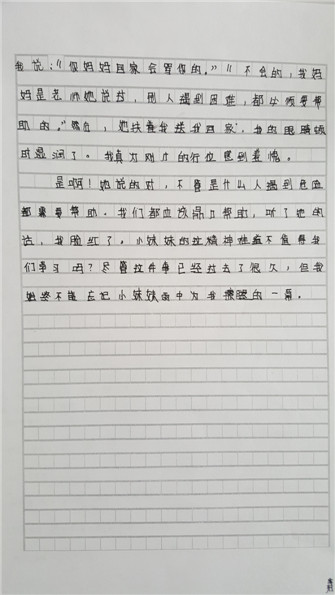 我说：“你妈妈回家会骂你的。”“不会的，我妈
妈是老师她说过，别人遇到困难，都必须要帮
助的。”随后，她扶着我送我回家，我的眼睛顿
时湿润了。我真为刚才的行位感到羞愧。
是啊！她说的对，不管是什么人遇到危险
都需要帮助。我们都应该帮助，听了她的
话，我脸红了。小妹妹的这精神难道不值得我
们学习吗？尽管这件事已经过去了很久，但我
始终不能忘记小妹妹雨中为我撑的一幕。